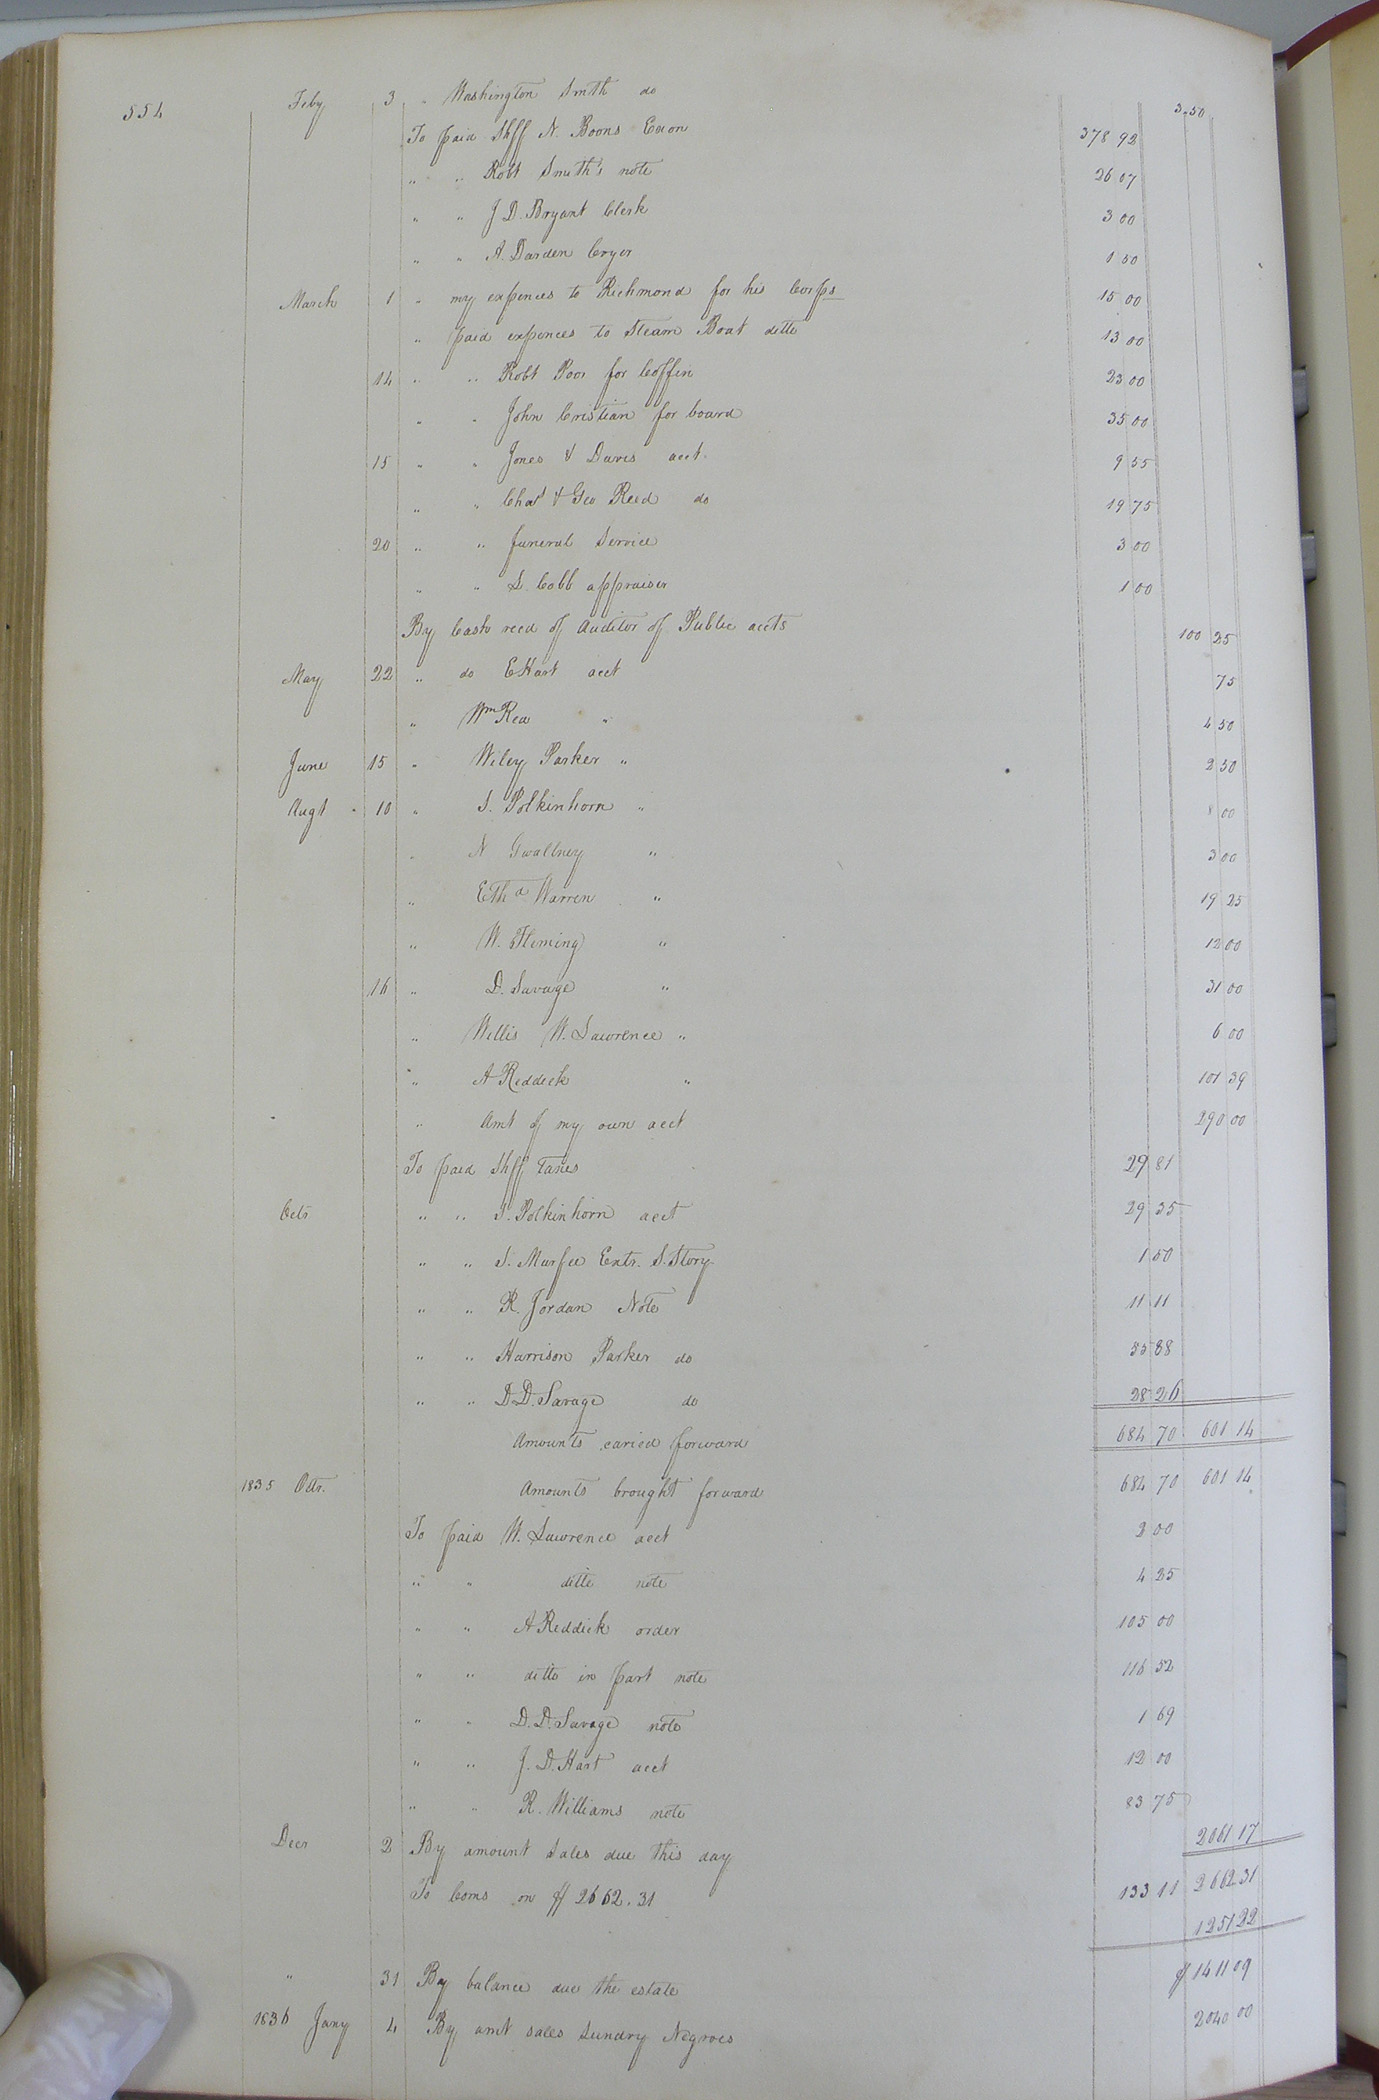 554
Feby 3 " Washington Smith do 3.50
To paid Shff N. Boons Exon 378 92
" " Robt Smith's note 26 07
" " J D. Bryant Clerk 3 00
" " A. Darden Cryer 1 50
March 1 " my expences to Richmond for his Corps 15 00
" paid expences to Steam Boat ditto 13 00
14 " " Robt Poor for Coffin 23 00
" " John Cristian for board 35 00
15 " " Jones & Davis acct 9 55
" " Chas & Geo Reed do 19 75
20 " " funeral Service 3 00
" " S. Cobb appraiser 1 00
By Cash recd of Auditor of Public accts 100 25
May 22 " do E Hart acct 75
" Wm Rea " 4 50
June 15 " Wiley Parker " 2 50
Augt 10 " S. Polkinhorn " 00
" N Gwaltney " 3 00
" Etha Warren " 19 25
" W. Fleming " 12 00
16 " D. Savage " 31 00
" Willis W. Lawrence " 6 00
" A Reddick " 101 39
" Amt of my own acct 290 00
To paid Shff Taxes 29 81
Octr " " S. Polkinhorn acct 29 35
" " S. Murfee Extr. S. Story 1 50
" " R. Jordan Note 11 11
" " Harrison Parker do 55 88
" " D D. Savage do 28 26
Amounts caried forward 684 70 601 14
1835 Octr. Amounts brought forward 684 70 601 14
To paid W. Lawrence acct 2 00
" " ditto note 4 25
" " A Reddick order 105 00
" " ditto in part note 116 52
" " D. D. Savage note 1 69
" " J. D. Hart acct 12 00
" " R. Williams note 83 75
Decr 2 By amount Sales due this day 2061 17
To Coms on $ 2662.31 133 11 2662 31
1251 22
" 31 By balance due the estate $ 1411 09
1836 Jany 4 By amt sales Sundry Negroes 2040 00